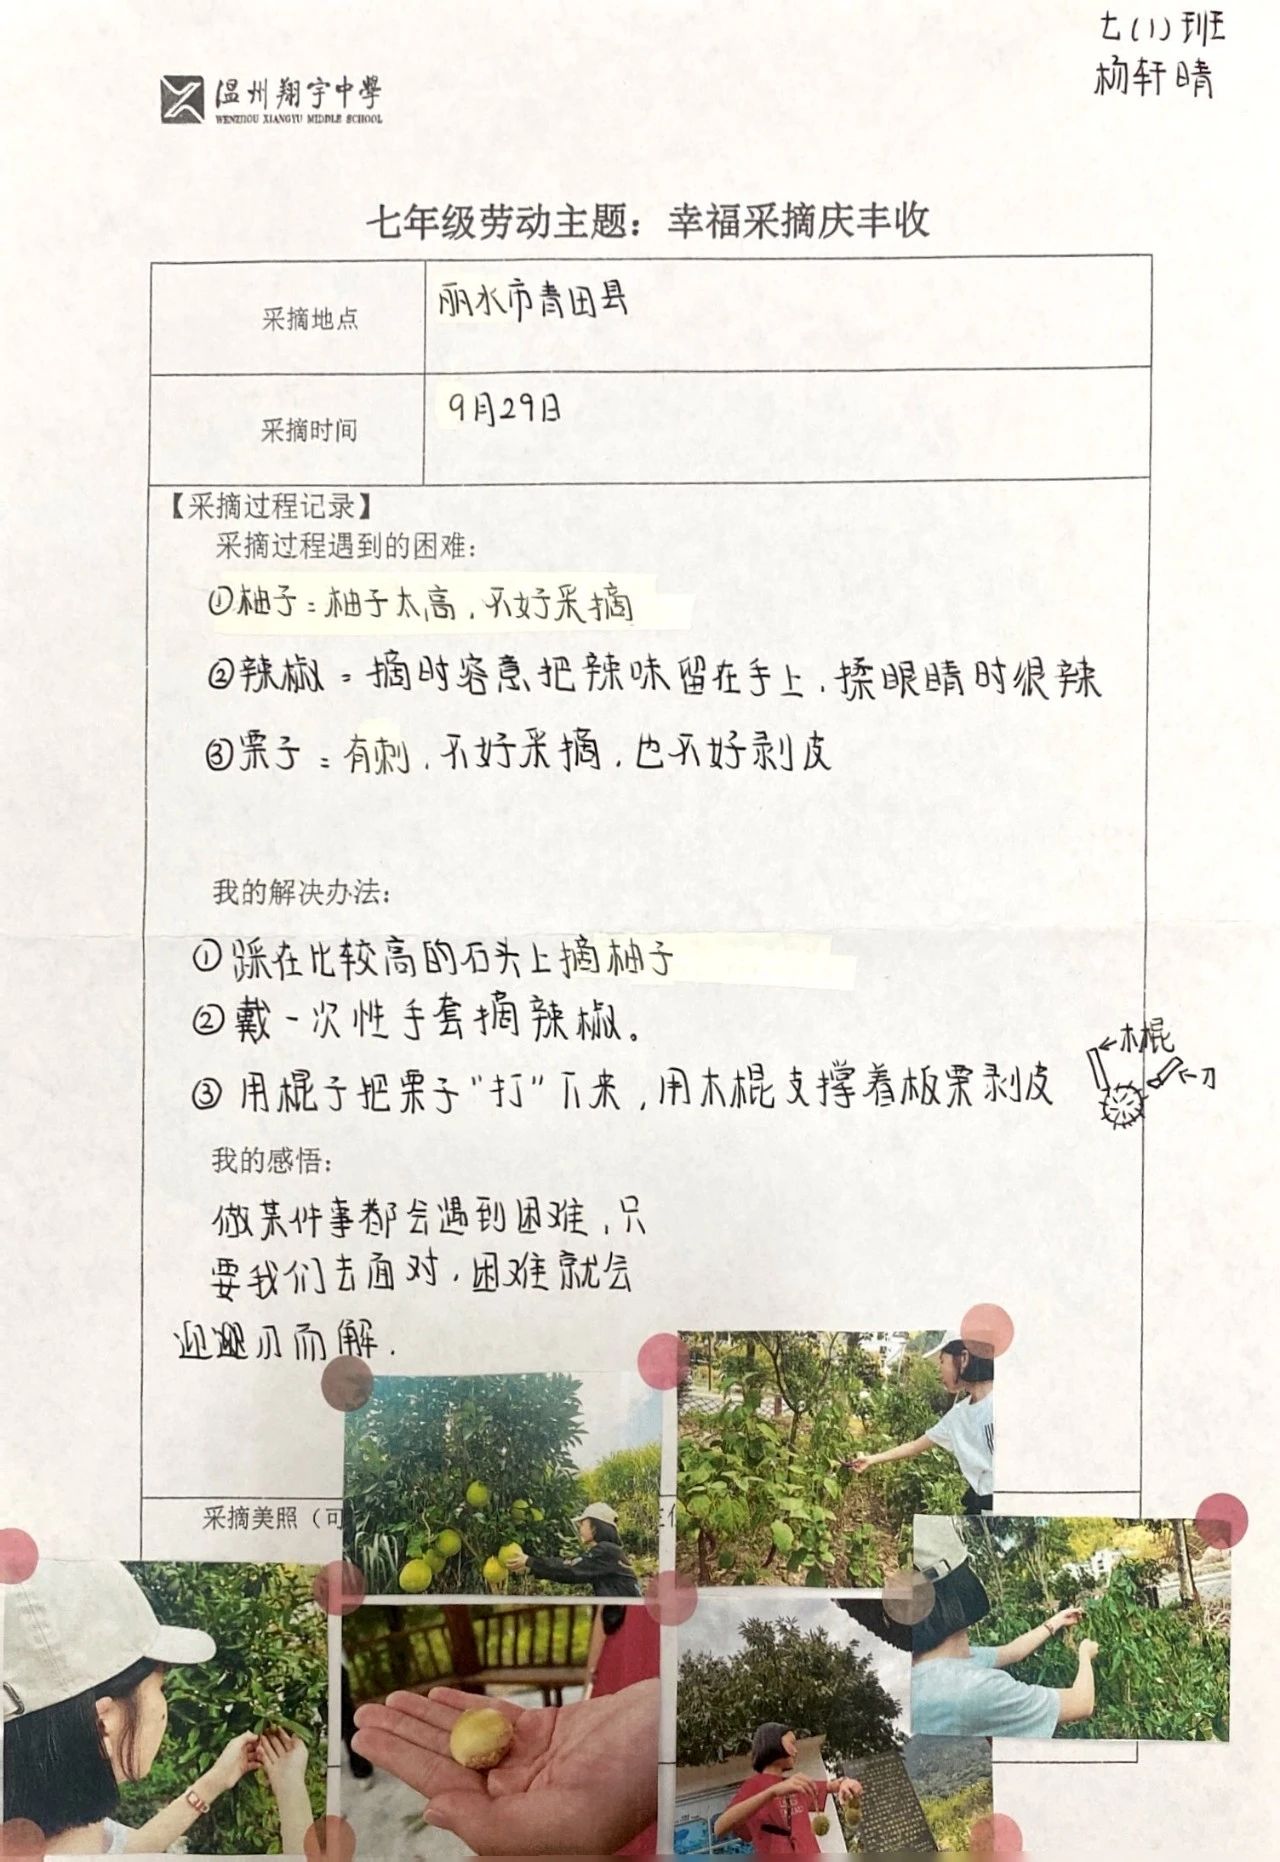 七(1)班
杨轩晴
温州翔宇中学
WENZHOU XIANGYU MIDDLE SCHOOL
七年级劳动主题：幸福采摘庆丰收
采摘地点
丽水市青田县
采摘时间
9月29日
【采摘过程记录】
采摘过程遇到的困难：
①柚子：柚子太高，不好采摘
②辣椒：摘时容意把辣味留在手上，揉眼睛时很辣
③栗子：有刺，不好采摘，也不好剥皮
我的解决办法：
①踩在比较高的石头上摘柚子
②戴一次性手套摘辣椒。
←木棍
③用棍子把栗子“打”下来，用木棍支撑着板栗剥皮
←刀
我的感悟：
做某件事都会遇到困难，只
要我们去面对，困难就会
迎刃而解.
采摘美照（可